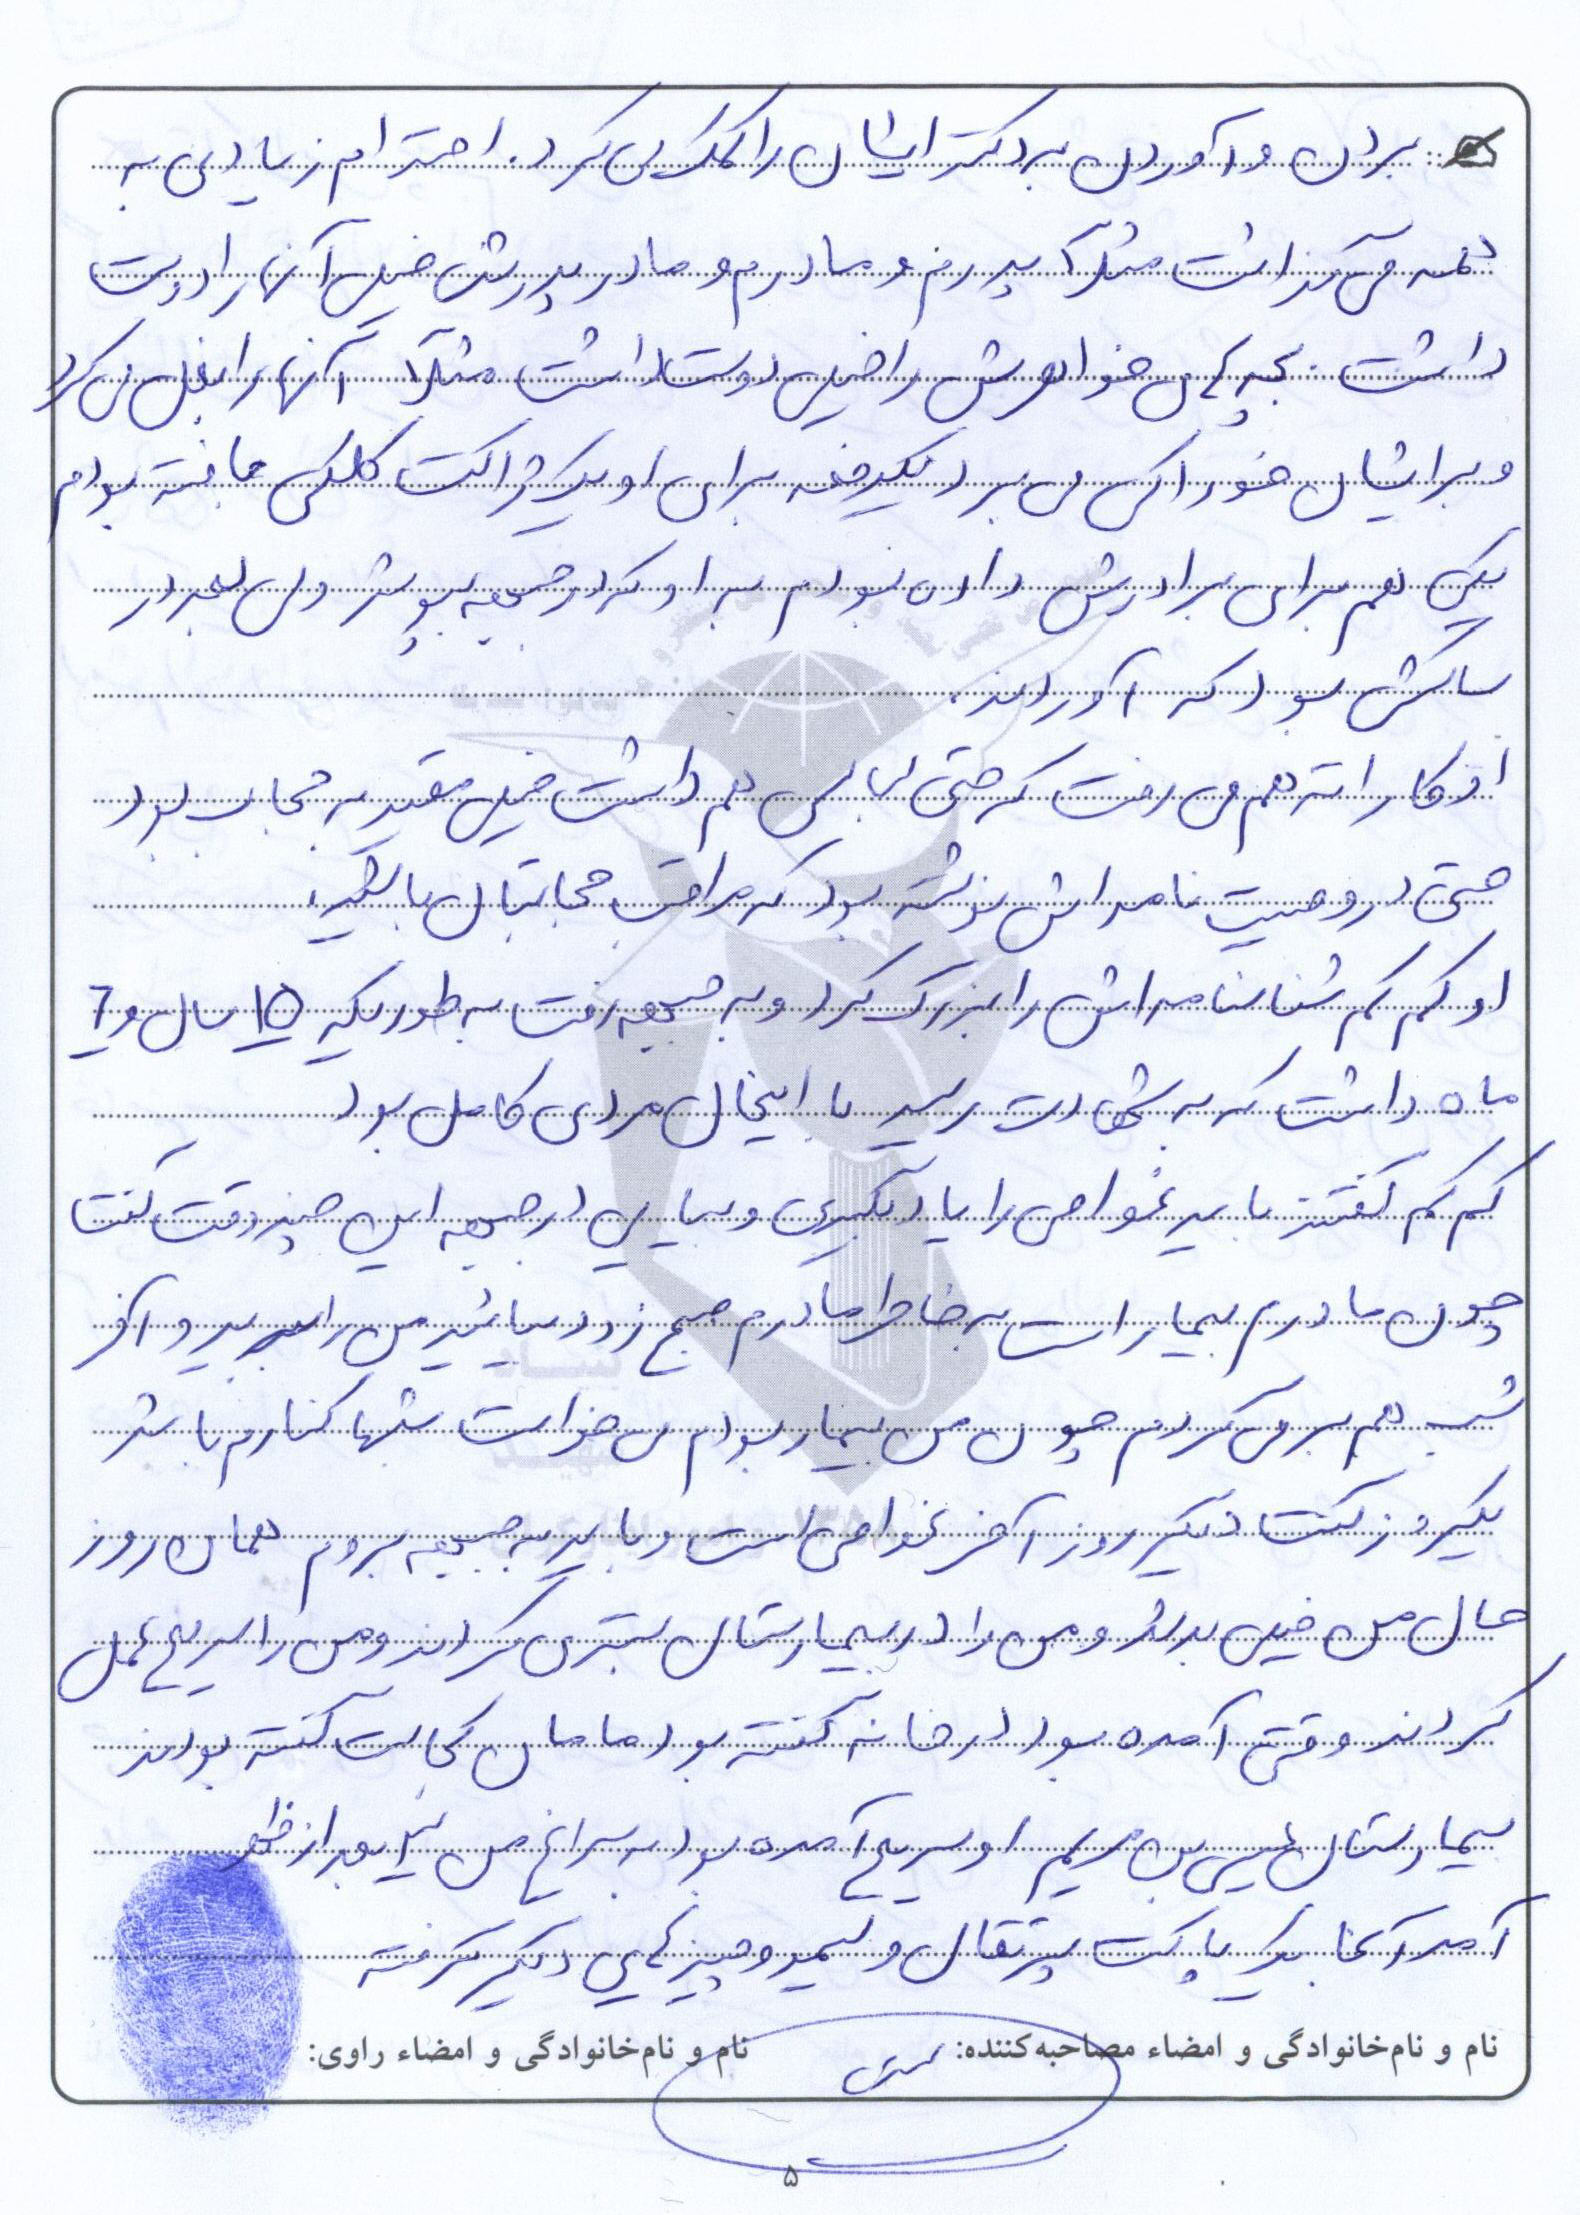 بردن و آوردن به دکتر ایشان را کمک می کرد. احترام زیادی به
همه می گذاشت مثلاً پدرم و مادرم و مادر پدرش خیلی آنها را دوست
داشت. بچه های خواهرش را خیلی دوست داشت مثلاً آنها را بغل می کرد
و برایشان خوراکی می برد یکدفعه برای او یک ژاکت کلفتی بافته بودم
یکی هم برای برادرش داده بودم به او که در جبهه بپوشد ولی بعد در
ساکش بود که آوردند.
او کاراته هم می رفت که حتی لباس هم داشت خیلی مقید به حجاب بود
حتی در وصیت نامه اش نوشته بود که مراقب حجابتان باشید.
او کم کم شناسنامه اش را بزرگ کرد و به جبهه رفت به طوریکه 15 سال و 7
ماه داشت که به شهادت رسید با اینحال مردی کامل بود
کم کم گفتند باید غواصی را یاد بگیری و بیایی در جبهه این چند وقت گفت
چون مادرم بیمار است به خاطر مادرم صبح زود بیائید من را ببرید و آخر
شب هم برمی گردم چون من بیمار بودم می خواست شبها کنارم باشد
یکروز گفت دیگر روز آخر غواصی است و باید به جبهه بروم همان روز
حال من خیلی بد شد و من را در بیمارستان بستری کردند و من را سریع عمل
کردند وقتی آمده بود در خانه گفته بود مامان کجاست گفته بودند
بیمارستان عیسی بن مریم او سریع آمده بود به سراغ من بعد از ظهر
آمد آنجا یک پاکت پرتقال و لیمو و چیزهایی دیگر گرفته
نام و نام‌خانوادگی و امضاء مصاحبه‌کننده:
نام و نام‌خانوادگی و امضاء راوی:
۵